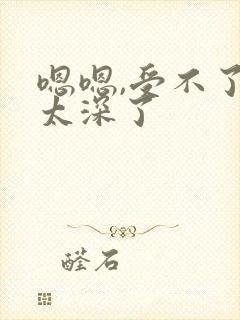 嗯嗯,受不了
太深了
醛石